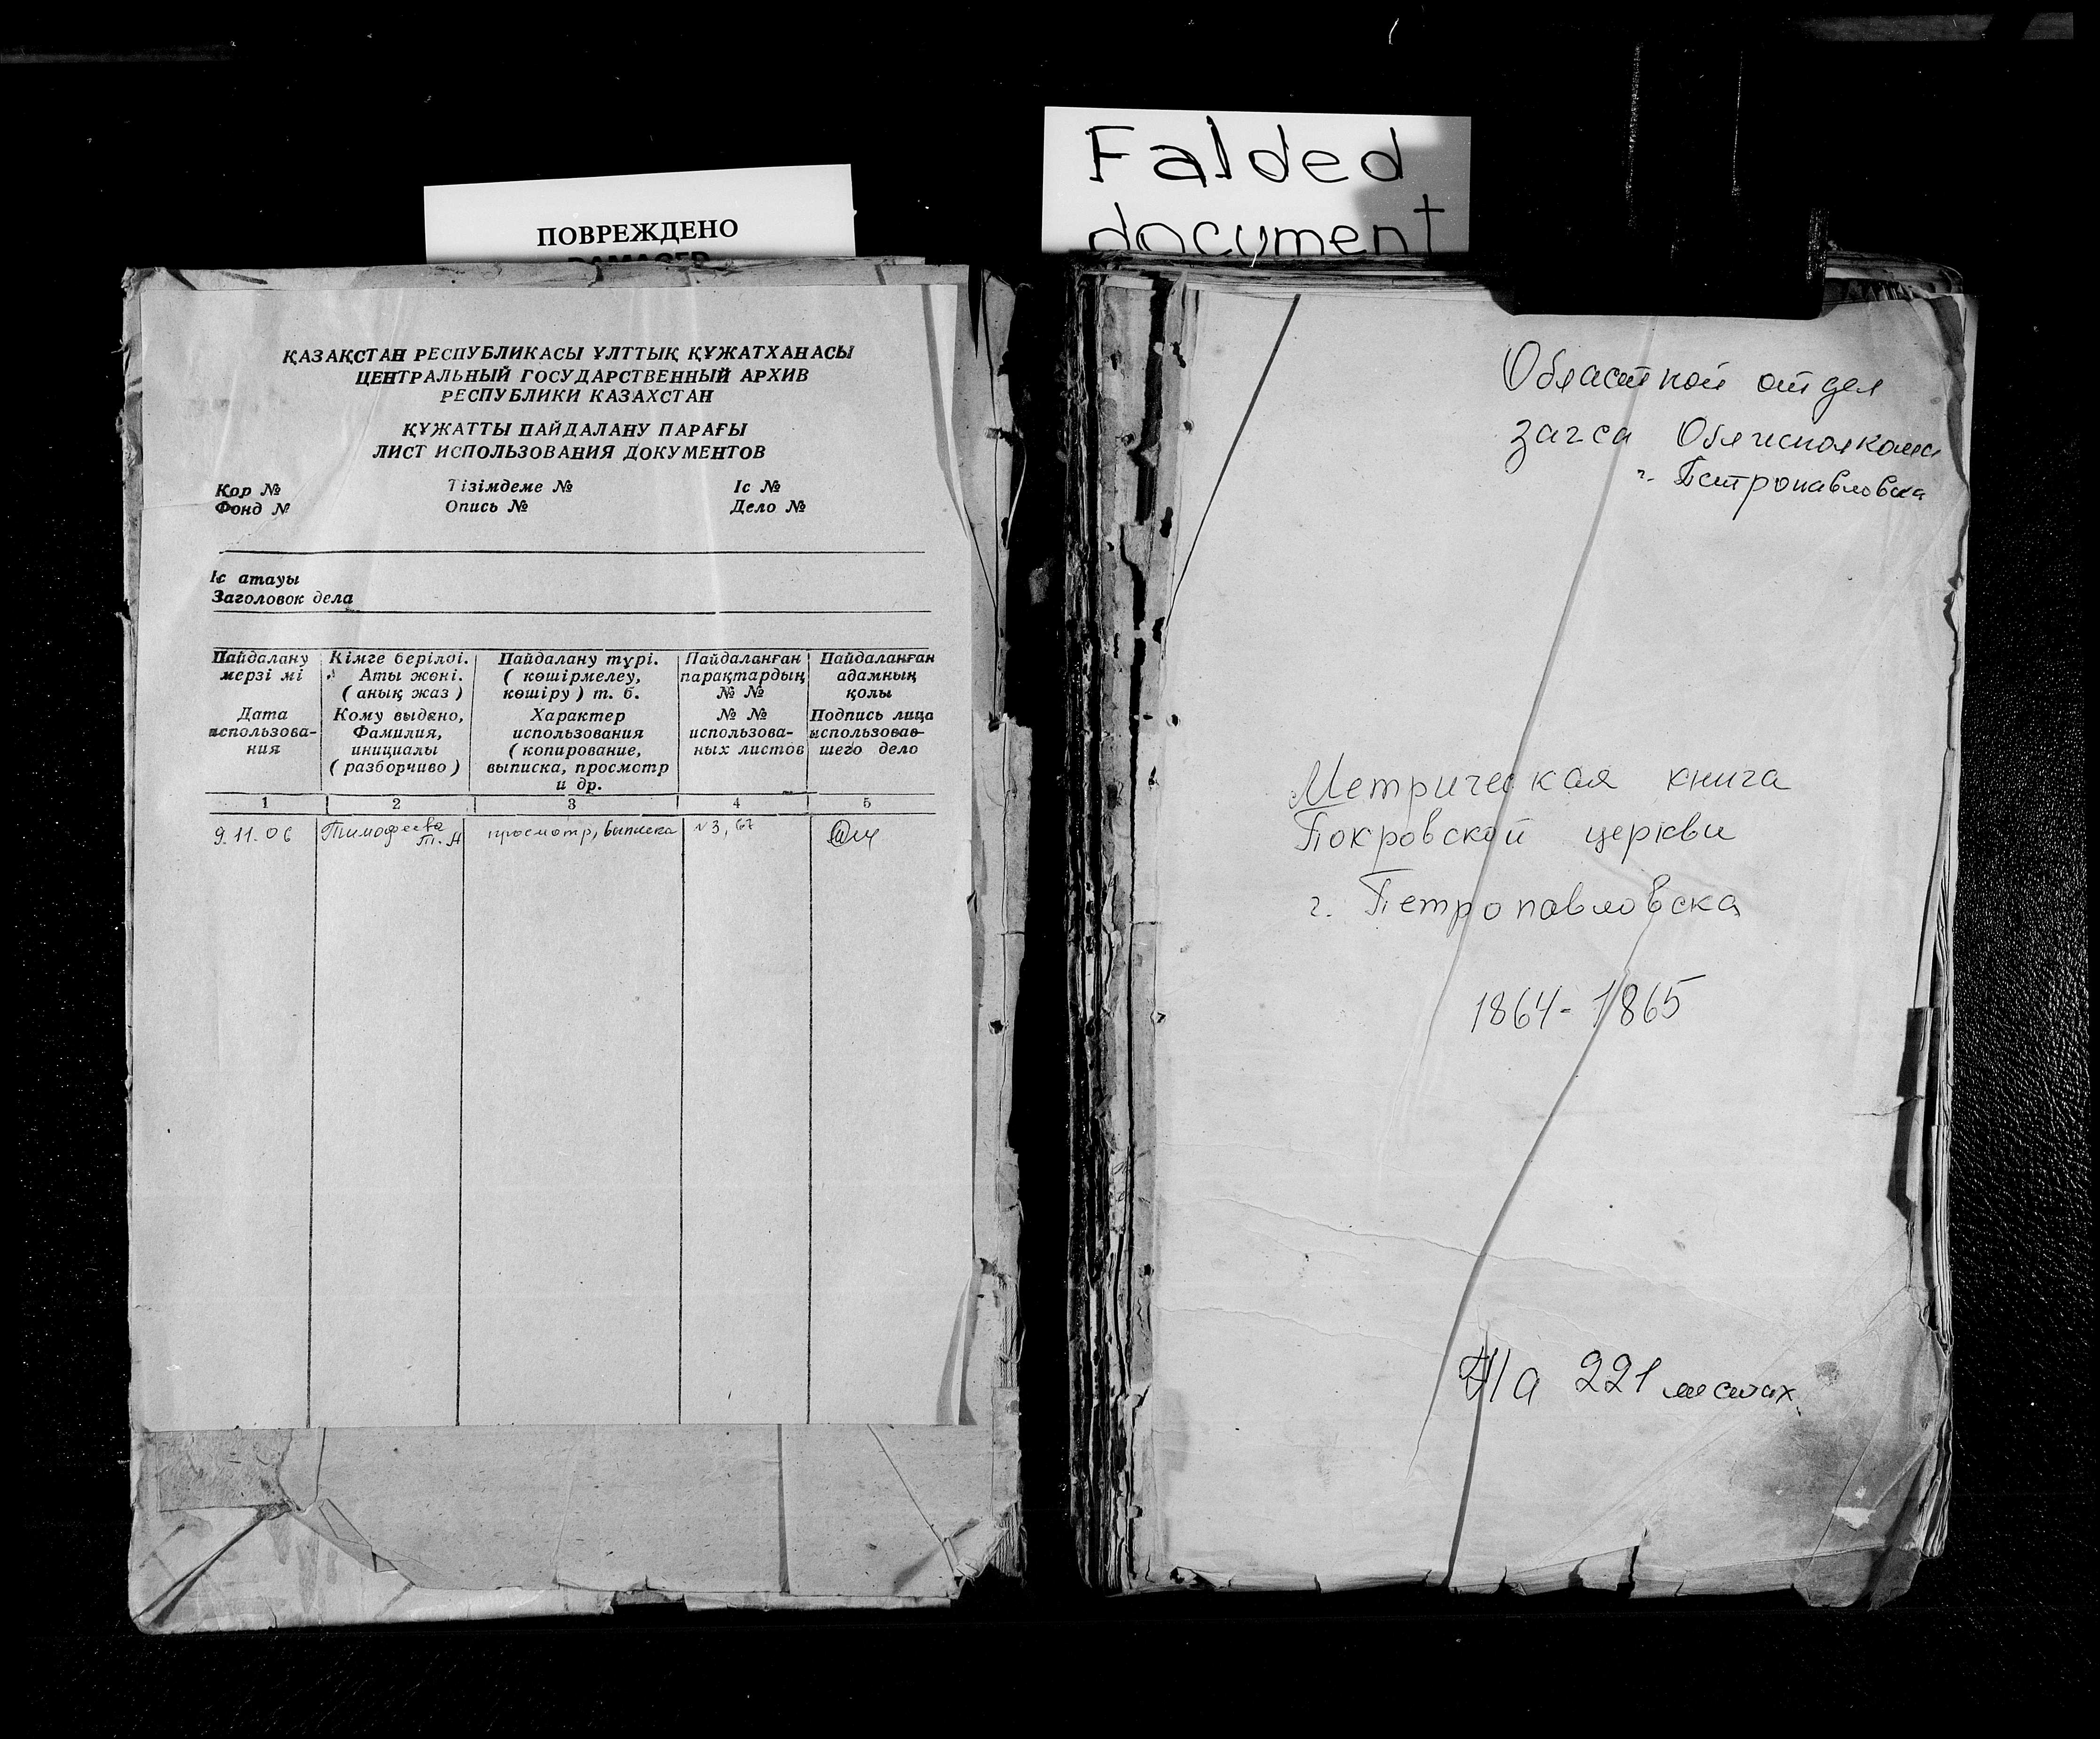 ПОВРЕЖДЕНО
DAMAGED
Falded
document
ҚАЗАҚСТАН РЕСПУБЛИКАСЫ ҰЛТТЫҚ ҚҰЖАТХАНАСЫ
ЦЕНТРАЛЬНЫЙ ГОСУДАРСТВЕННЫЙ АРХИВ
РЕСПУБЛИКИ КАЗАХСТАН
ҚҰЖАТТЫ ПАЙДАЛАНУ ПАРАҒЫ
ЛИСТ ИСПОЛЬЗОВАНИЯ ДОКУМЕНТОВ
Қор № Тізімдеме № Іс №
Фонд № Опись № Дело №
Іс атауы
Заголовок дела
Пайдалану
мерзі мі
Дата
использова-
ния
Кімге берілді.
Аты жөні.
( анық жаз )
Кому выдано,
Фамилия,
инициалы
( разборчиво )
Пайдалану түрі.
( көшірмелеу,
көшіру ) т. б.
Характер
использования
( копирование,
выписка, просмотр
и др.
Пайдаланған
парақтардың
№ №
№ №
использова-
ных листов
Пайдаланған
адамның
қолы
Подпись лица
использовав-
шего дело
1 2 3 4 5
9.11.06 Тимофеева просмотр, выписка
Т. А
Областной отдел
загса Облисполкома
г. Петропавловска
Метрическая книга
Покровской церкви
г. Петропавловска
1864-1865
На 221 листах.